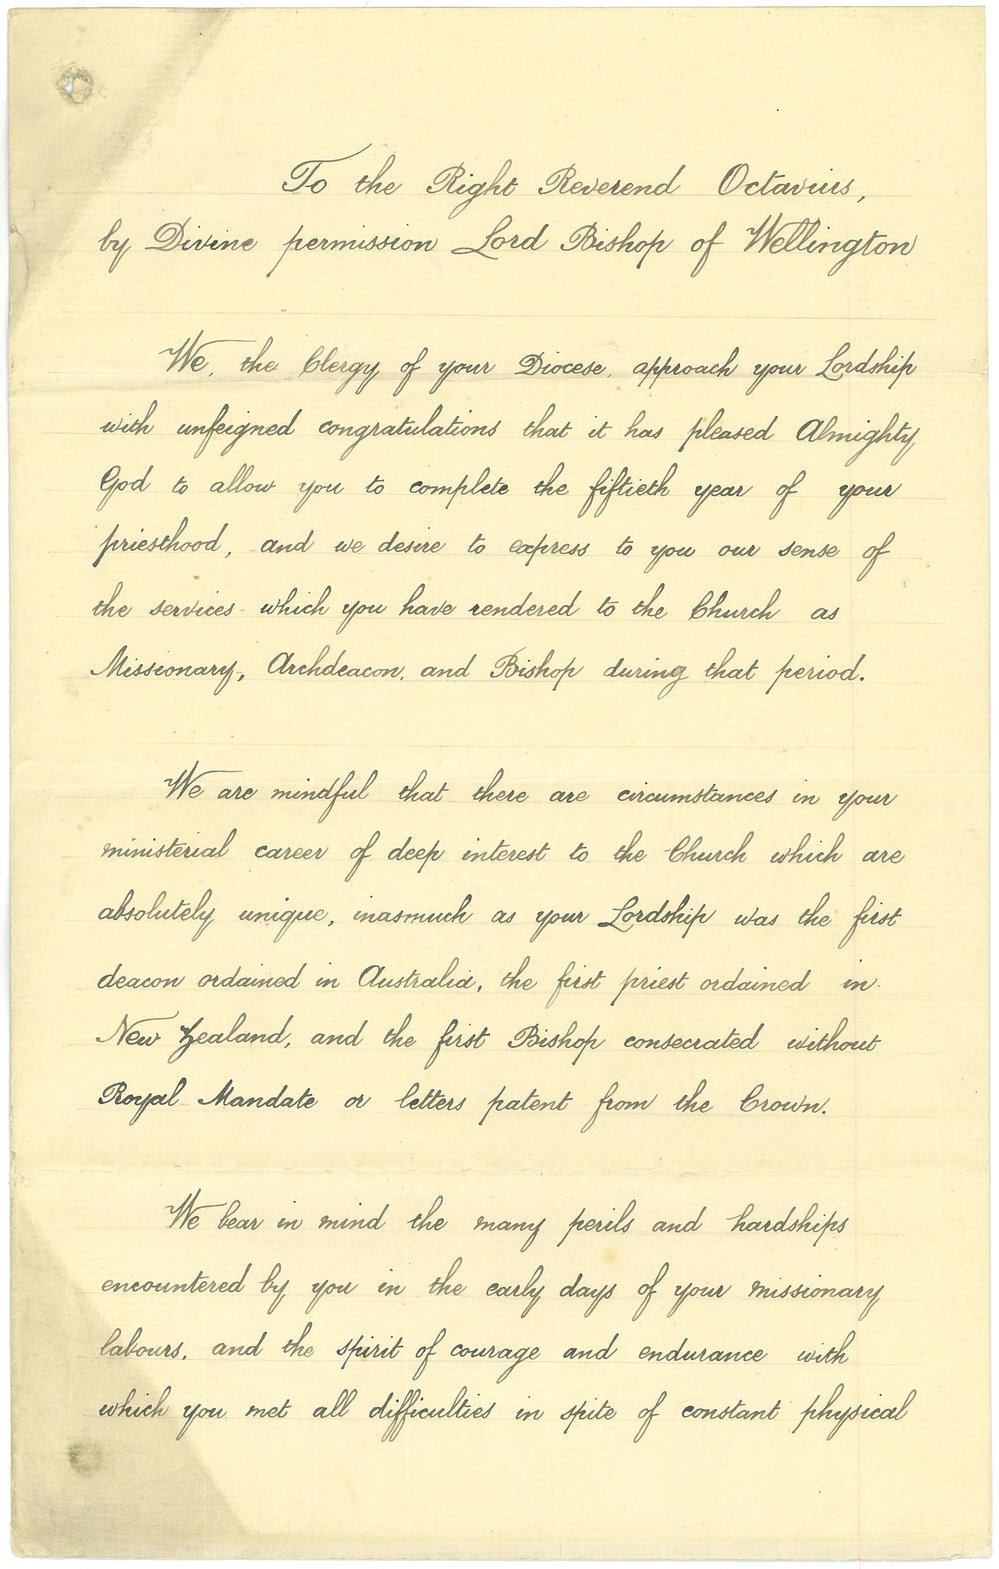 To the Right Reverend Octavius,
by Divine permission Lord Bishop of Wellington
We, the Clergy of your Diocese, approach your Lordship
with unfeigned congratulations that it has pleased Almighty
God to allow you to complete the fiftieth year of your
priesthood, and we desire to express to you our sense of
the services which you have rendered to the Church as
Missionary, Archdeacon, and Bishop during that period.
We are mindful that there are circumstances in your
ministerial career of deep interest to the Church which are
absolutely unique, inasmuch as your Lordship was the first
deacon ordained in Australia, the first priest ordained in
New Zealand, and the first Bishop consecrated without
Royal Mandate or letters patent from the Crown.
We bear in mind the many perils and hardships
encountered by you in the early days of your missionary
labours, and the spirit of courage and endurance with
which you met all difficulties in spite of constant physical